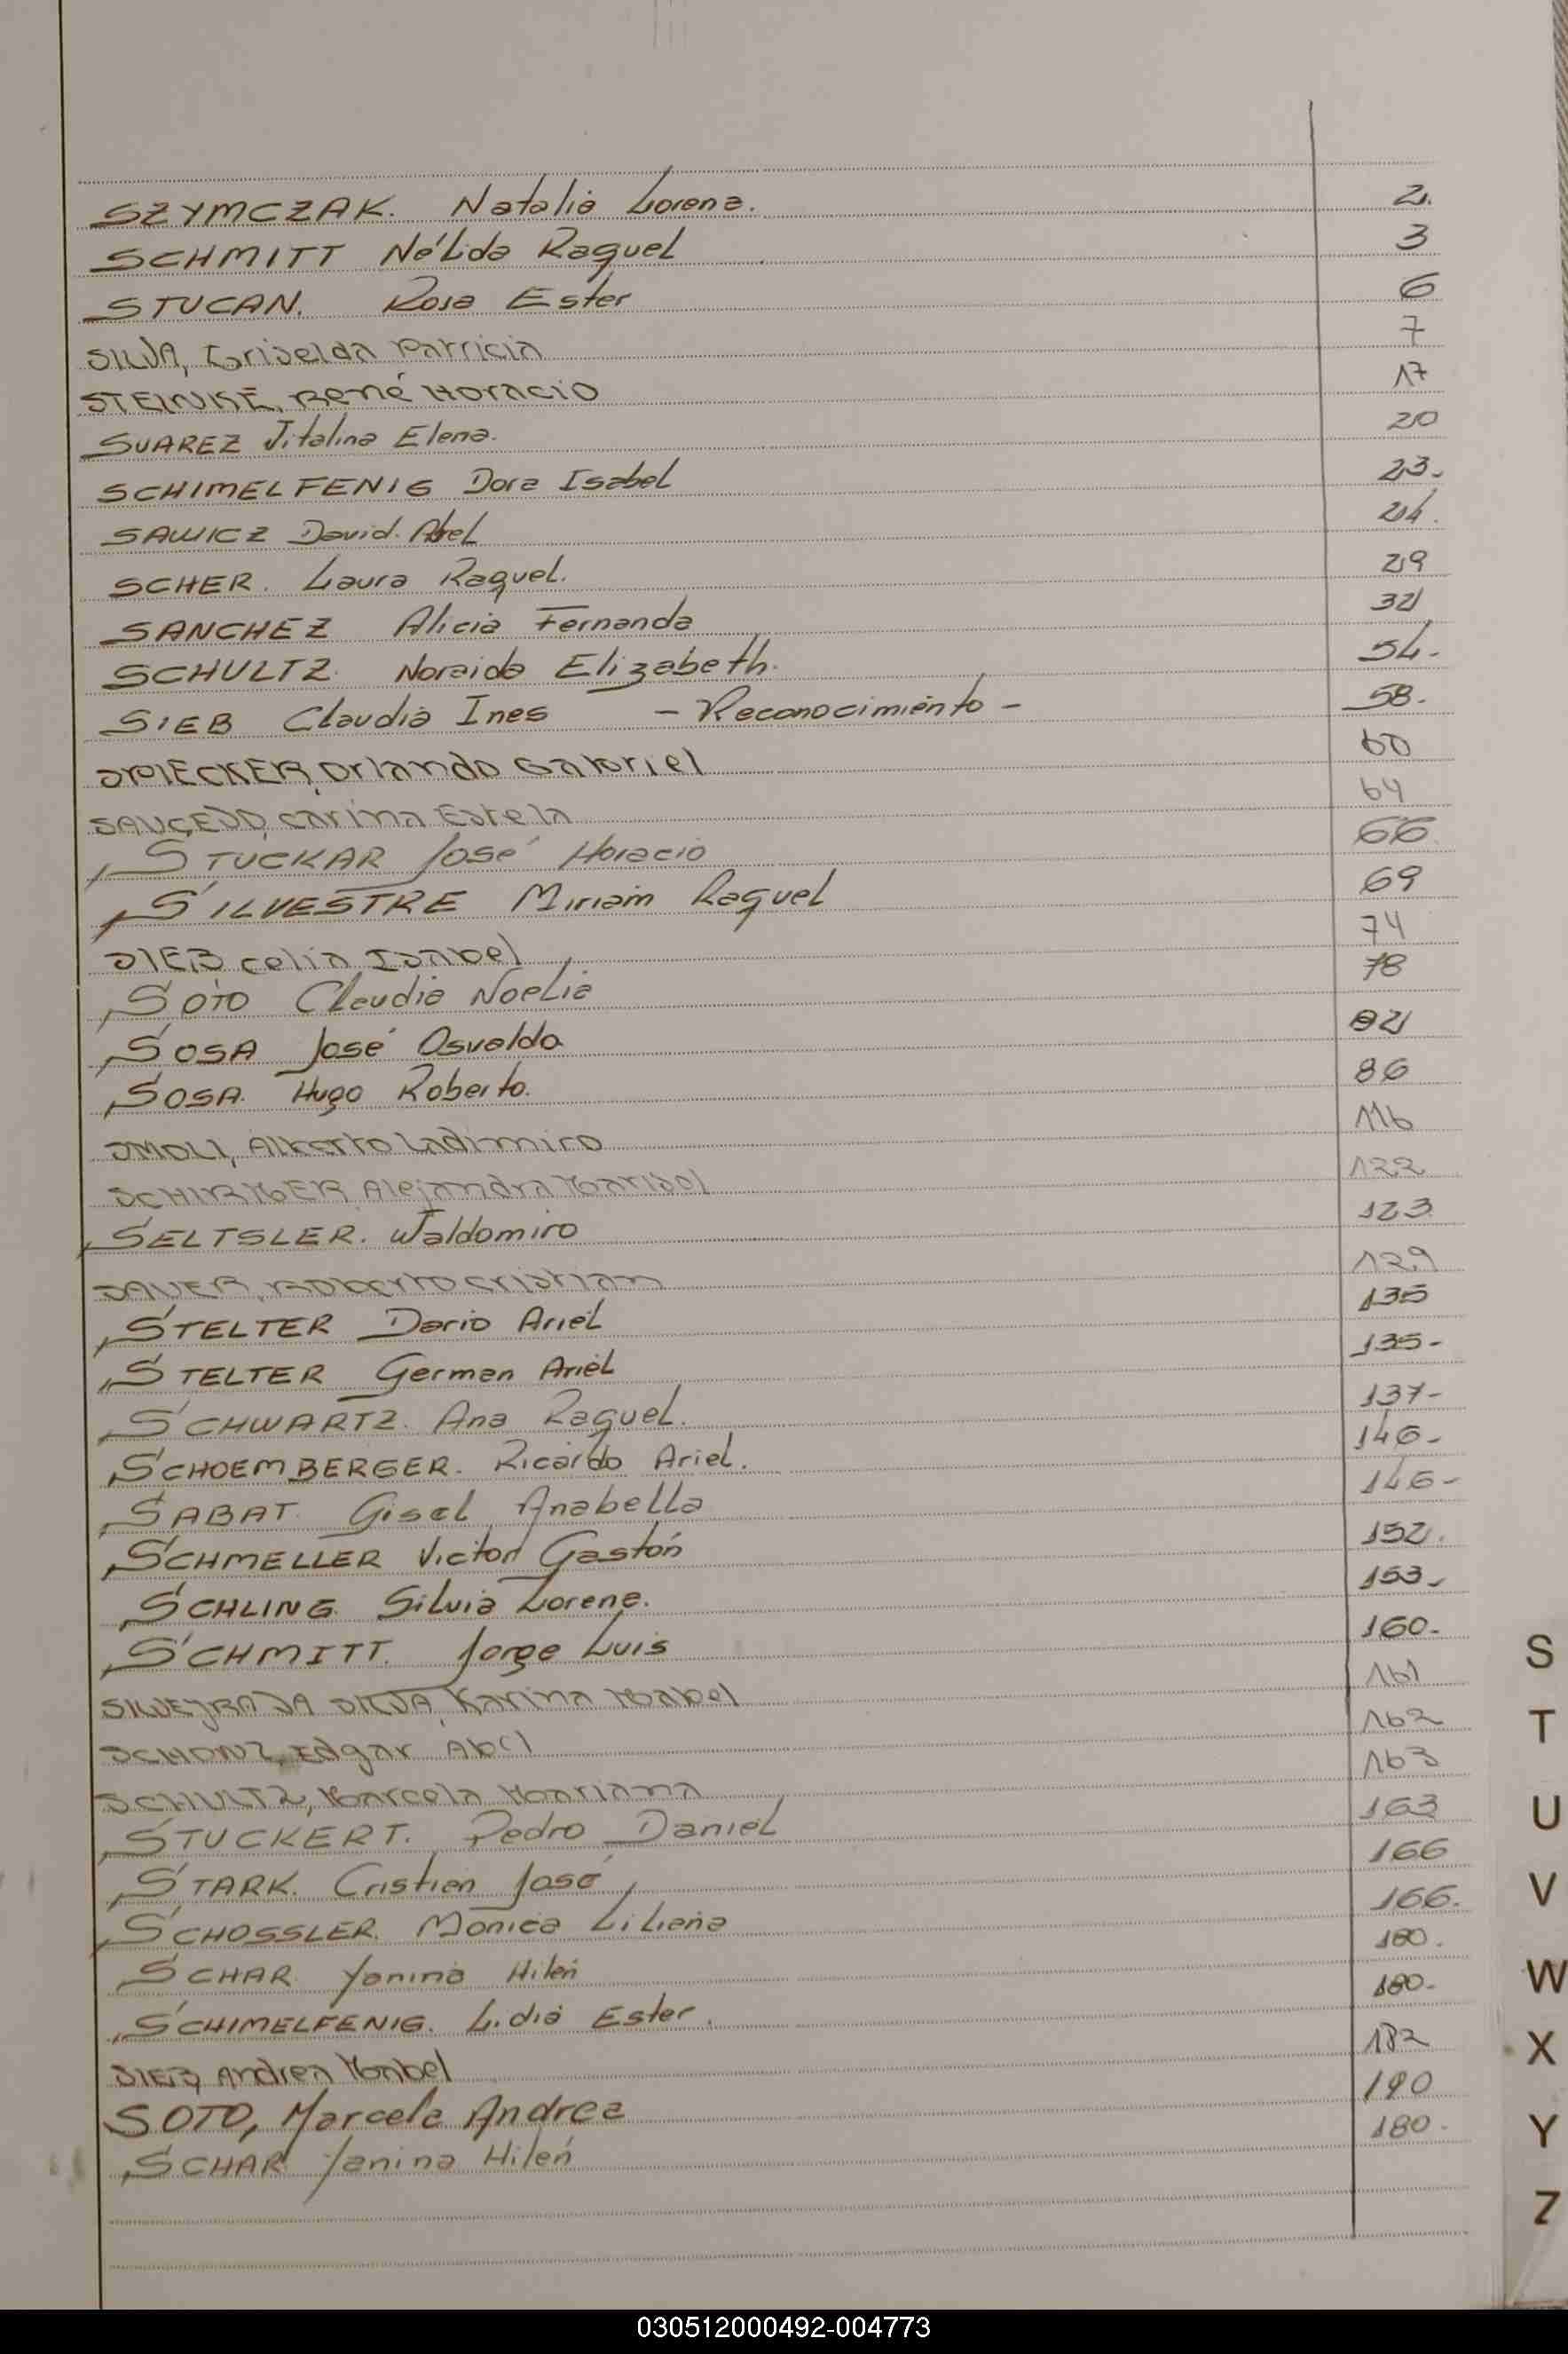 SZYMCZAK. Natalia Lorena. 2.
SCHMITT Nélida Raquel 3
STUCAN. Rosa Ester 6
SILVA, Griselda Patricia 7
STEINKE, René Horacio 17
SUAREZ Vitalina Elena. 20
SCHIMELFENIG Dora Isabel 23.
SAWICZ David Abel 24.
SCHER. Laura Raquel. 29
SANCHEZ Alicia Fernanda
SCHULTZ. Noraida Elizabeth. 54.
SIEB Claudia Ines - Reconocimiento - 58.
SPIECKER, Orlando Gabriel 60
SAUCEDO, Carina Estela 64
STUCKAR José Horacio 66
SILVESTRE Miriam Raquel 69
SIEB Celia Isabel 74
SOTO Claudia Noelia 78
SOSA José Osvaldo
SOSA. Hugo Roberto. 86
SMOLI, Alberto Ladimiro 116
SCHIRMER, Alejandra Marisol 122
SELTSLER. Waldomiro 123
SAUER, Roberto Cristian 129
STELTER Dario Ariel 135
STELTER German Ariel 135-
SCHWARTZ. Ana Raquel. 137-
SCHOEMBERGER. Ricardo Ariel. 146-
SABAT. Gisel Anabella 146-
SCHMELLER Victor Gastón 152.
SCHLING. Silvia Lorena. 153-
SCHMITT. Jorge Luis 160-
SILVEJRA DA SILVA, Karina Mabel 161
SCHONZ, Edgar Abel 162
SCHULTZ, Marcela Mariana 163
STUCKERT. Pedro Daniel 163
STARK. Cristian José 166
SCHOSSLER. Mónica Liliana 166.
SCHAR Yanina Hilén 180.
SCHIMELFENIG. Lidia Ester. 180-
SIEB, Andrea Mabel 182
SOTO, Marcela Andrea 190
SCHAR Yanina Hilén 180.
S
T
U
V
W
X
Y
Z
030512000492-004773